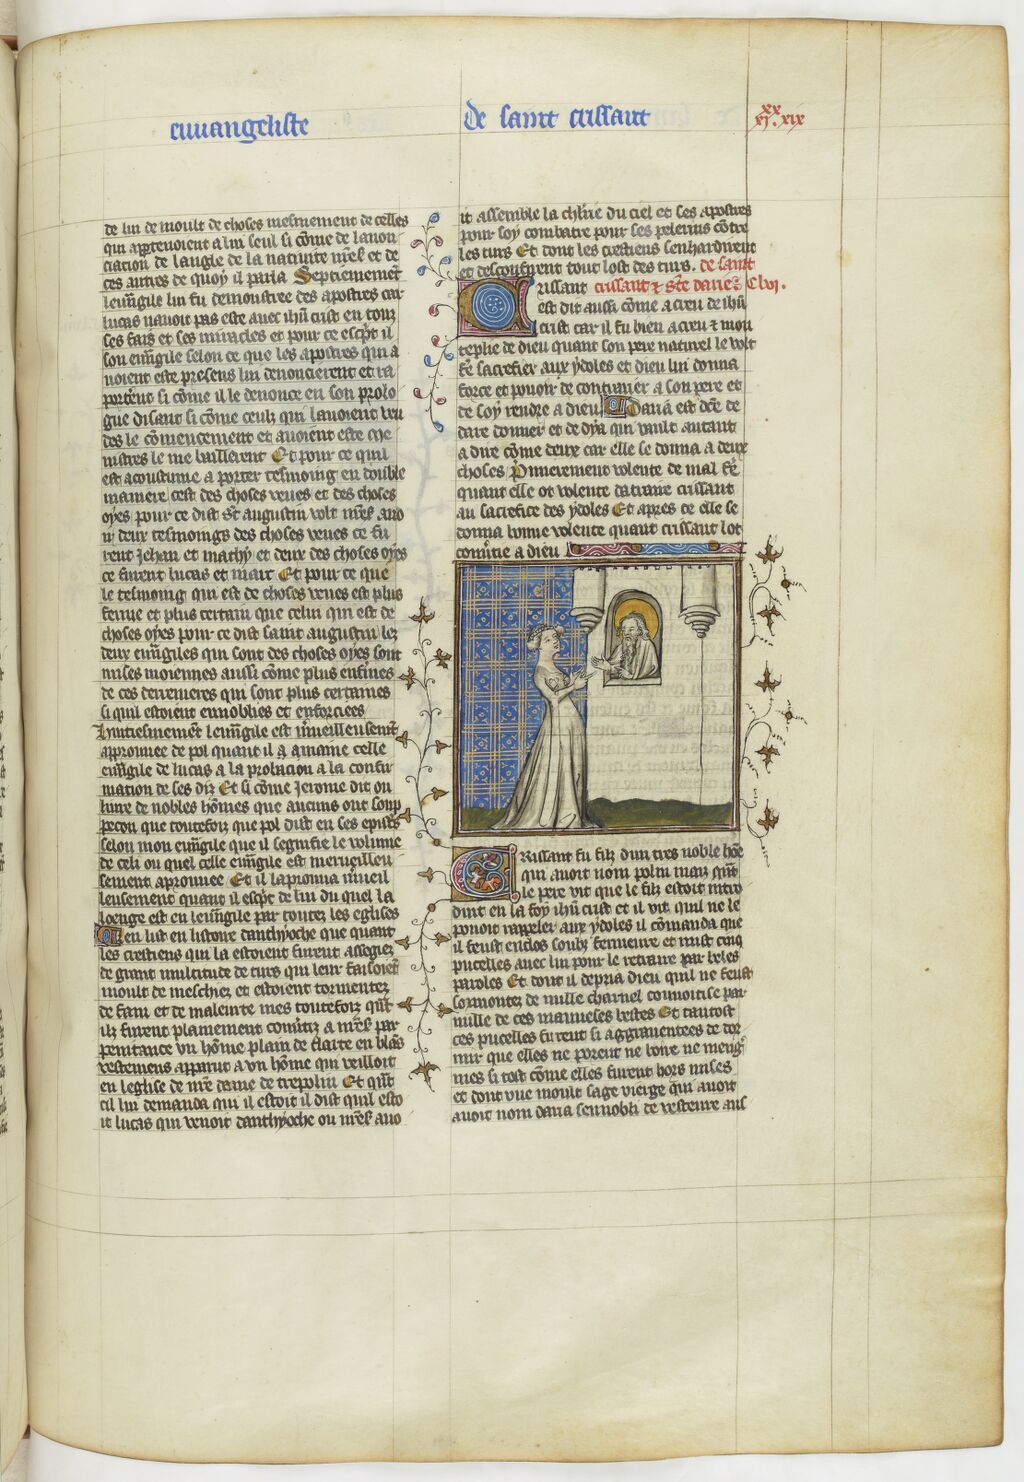 euuangeliste
de saint crissant
xx
xj. xix
de lui de moult de choses mesmement de celles
qui appartenoient a lui seul si cõme de lanon
ciation de laugle de la natiuite nr̃e et de
ces autres de quoy il parla Septiemement
leuuãgile lui fu demonstree des apostres car
lucas nauoit pas este auec ihũ crist en touz
ses fais et ses miracles et pour ce escpt il
son euuãgile selon ce que les apostres qui a
uoient este presens lui denoncierent et ra
porterent si cõme il le denonce en son prolo
gue disant si cõme ceulz qui lauoient veu
des le cõmencement et auoient este me
nistres le me baillerent Et pour ce quil
est acoustume a porter tesmoing en double
maniere cest des choses veues et des choses
oyes pour ce dist st augustin volt nr̃e
deux tesmoings des choses veues ce fu
rent jehan et mathy et deux des choses oyes
ce furent lucas et marc Et pour ce que
le tesmoing qui est de choses veues est plus
ferme et plus certain que celui qui est de
choses oyes pour ce dist saint augustin les
deux euuãgiles qui sont des choses oyes sont
mises moiennes aussi cõme plus enfines
de ces derrenieres qui sont plus certaines
si quil estoient ennoblies et enforciees
huitiesment leuuãgile est
approuuee de pol quant il a amaine celle
euuãgile de lucas a la prolacion a la confir
mation de ses diz Et si cõme Jerome dit ou
liure de nobles hõmes que aucuns ont soup
pecon que toutesfoiz que pol dist en ses epistres
selon mon euuãgile que il segnifie le volume
de celi ou quel celle euuãgile est merueilleu
sement aprouuee Et il laprouua
leusement quant il escpt de lui du quel la
loenge est en leuuãgile par toutes les eglises
en list en listoire danthyoche que quant
les crestiens qui la estoient furent assegiez
de grant multitude de turs qui leur faisoient
moult de meschiez et estoient tormentez
de fain et de maleurte mes toutesfoiz qñt
ilz furent plainement cõuertiz a nr̃e par
penitance vn hõme plain de clarte en blans
vestemens apparut a vn hõme qui veilloit
en leglise de nr̃e dame de trepolin Et qñt
cil lui demanda qui il estoit il dist quil esto
it lucas qui venoit danthyoche ou nr̃e auo
it assemble la cheualerie du ciel et ses apostres
pour soy combatre pour ses pelerins cõtre
les turs Et dont les crestiens senhardirent
et descõfirent tout lost des turs. de saint
rissant crissant et ste darie. Clvj.
est dit aussi cõme acreu de ihũ
crist car il fu bien acreu et mou
teplie de dieu quant son pere naturel le volt
fere sacrefier aux ydoles et dieu lui donna
force et pouoir de contrarier a son pere et
de soy rendre a dieu Daria est dce de
dare donner et de dya qui vault autant
a dire cõme deux car elle se donna a deux
choses Premierement volente de mal fere
quant elle ot volente datraire crissant
au sacrefice des ydoles Et apres ce elle se
donna bonne volente quant crissant lot
cõuertie a dieu
rissant fu filz dun tres noble hõe
qui auoit nom polmi maiz qñt
le pere vit que le filz estoit intro
duit en la foy ihũ crist et il vit quil ne le
pouoit rappeler aux ydoles il cõmanda que
il feust enclos souz fermeure et mist cinq
pucelles auec lui pour le retraire par beles
paroles Et dont il depria dieu quil ne feust
sormontez de nulle charnel conuoitise par
nulle de ces mauueses bestes Et tantost
ces pucelles furent si aggrauentees de dor
mir que elles ne porent ne boire ne mengr̃
mes si tost cõme elles furent hors mises
et dont vne moult sage vierge qui auoit
auoit nom daria sennobli de vesteure aus